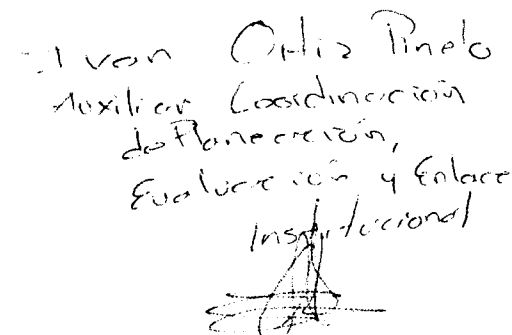 Ivan Ortiz Pinelo
Auxiliar Coordinación
de Planeación,
Evaluación y Enlace
Institucional